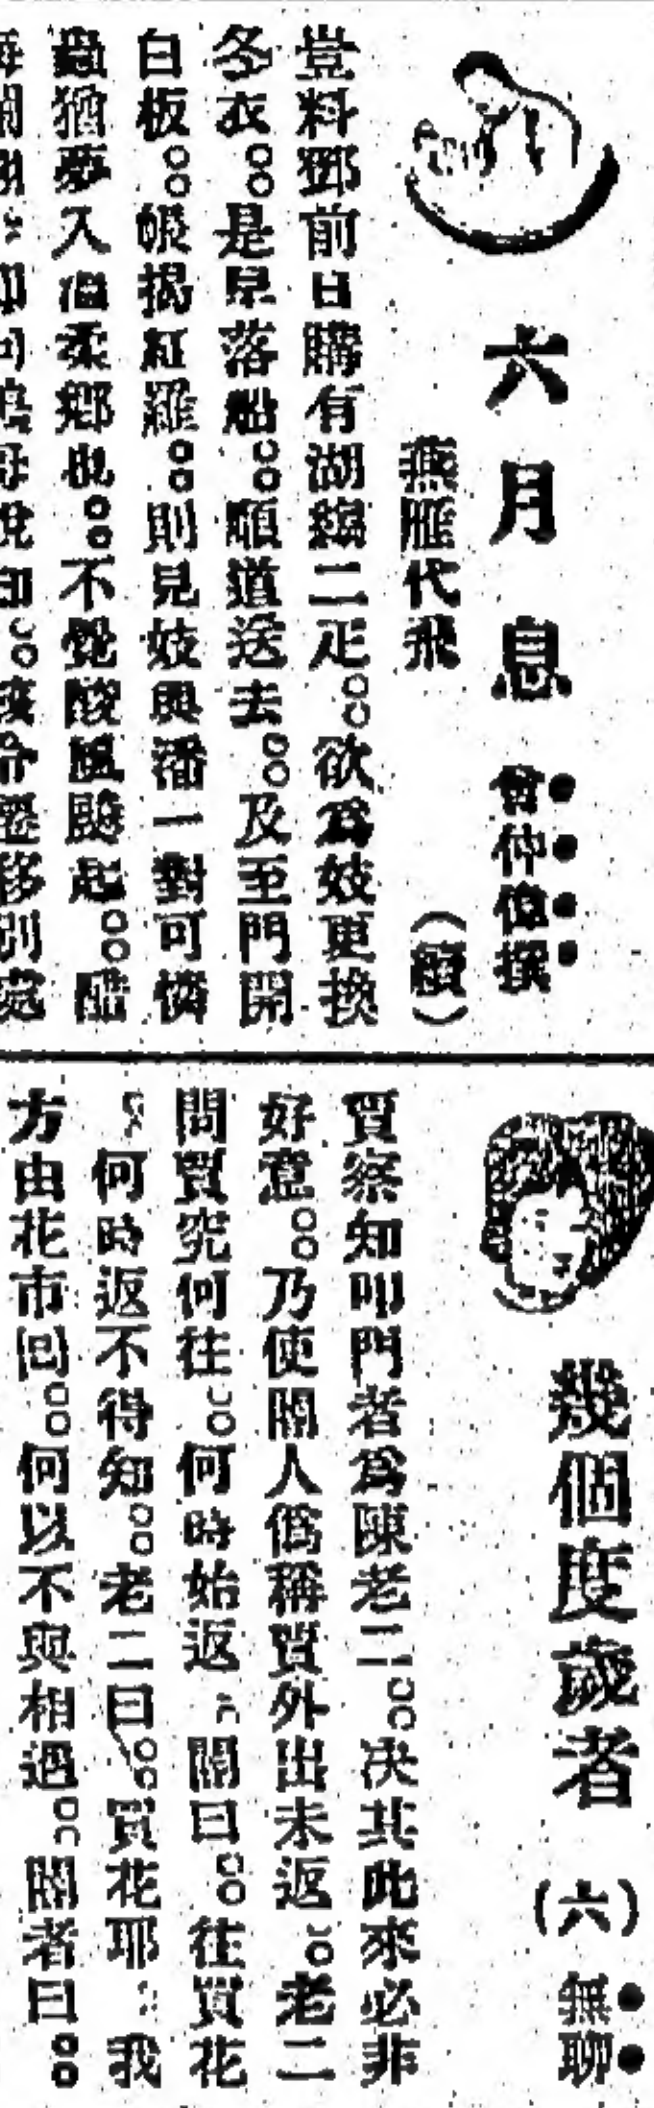 六月息 曾仲偉撰
燕雁代飛 (續)
豈料鄧前日購有湖縐二疋。。欲爲妓更換
冬衣。。是早落船。。順道送去。。及至門開
白板。。帳揭紅羅。。則見妓與潘一對可憐
蟲猶夢入溫柔鄉也。。不覺酸風驟起。。醋
移別院
幾個度歲者 (六) 無聊
賈察知叩門者爲陳老二。。决其此來必非
好意。。乃使閽人僞稱賈外出未返。。老二
問賈究何往。。何時始返。。閽曰。。往買花
。。何時返不得知。。老二曰。。買花耶。。我
方由花市回。。何以不與相遇。。閽者曰。。